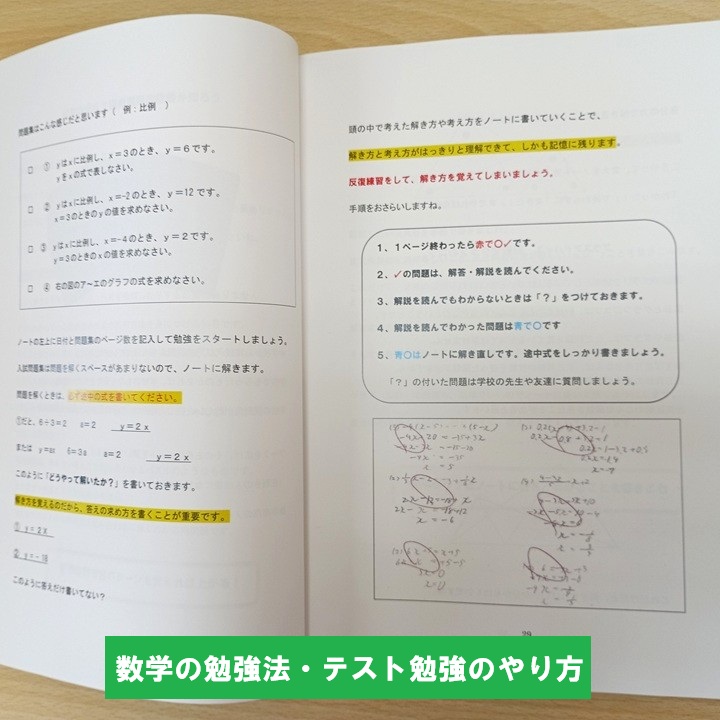 問題集はこんな感じだと思います（ 例：比例 ）
□ ① yはxに比例し、x＝3のとき、y＝6です。
yをxの式で表しなさい。
□ ② yはxに比例し、x＝-2のとき、y＝12です。
x＝3のときのyの値を求めなさい。
□ ③ yはxに比例し、x＝-4のとき、y＝2です。
y＝3のときのxの値を求めなさい。
□ ④ 右の図のア～エのグラフの式を求めなさい。
ノートの左上に日付と問題集のページ数を記入して勉強をスタートしましょう。
入試問題集は問題を解くスペースがあまりないので、ノートに解きます。
問題を解くときは、必ず途中の式を書いてください。
①だと、6÷3＝2 a＝2 y＝2x
または y＝ax 6＝3a a＝2 y＝2x
このように「どうやって解いたか？」を書いておきます。
解き方を覚えるのだから、答えの求め方を書くことが重要です。
① y＝2x
② y＝－18
このように答えだけ書いてない？
頭の中で考えた解き方や考え方をノートに書いていくことで、
解き方と考え方がはっきりと理解できて、しかも記憶に残ります。
反復練習をして、解き方を覚えてしまいましょう。
手順をおさらいしますね。
1、1ページ終わったら赤で〇✓です。
2、✓の問題は、解答・解説を読んでください。
3、解説を読んでもわからないときは「？」をつけておきます。
4、解説を読んでわかった問題は青で〇です
5、青〇はノートに解き直しです。途中式をしっかり書きましょう。
「？」の付いた問題は学校の先生や友達に質問しましょう。
29
数学の勉強法・テスト勉強のやり方